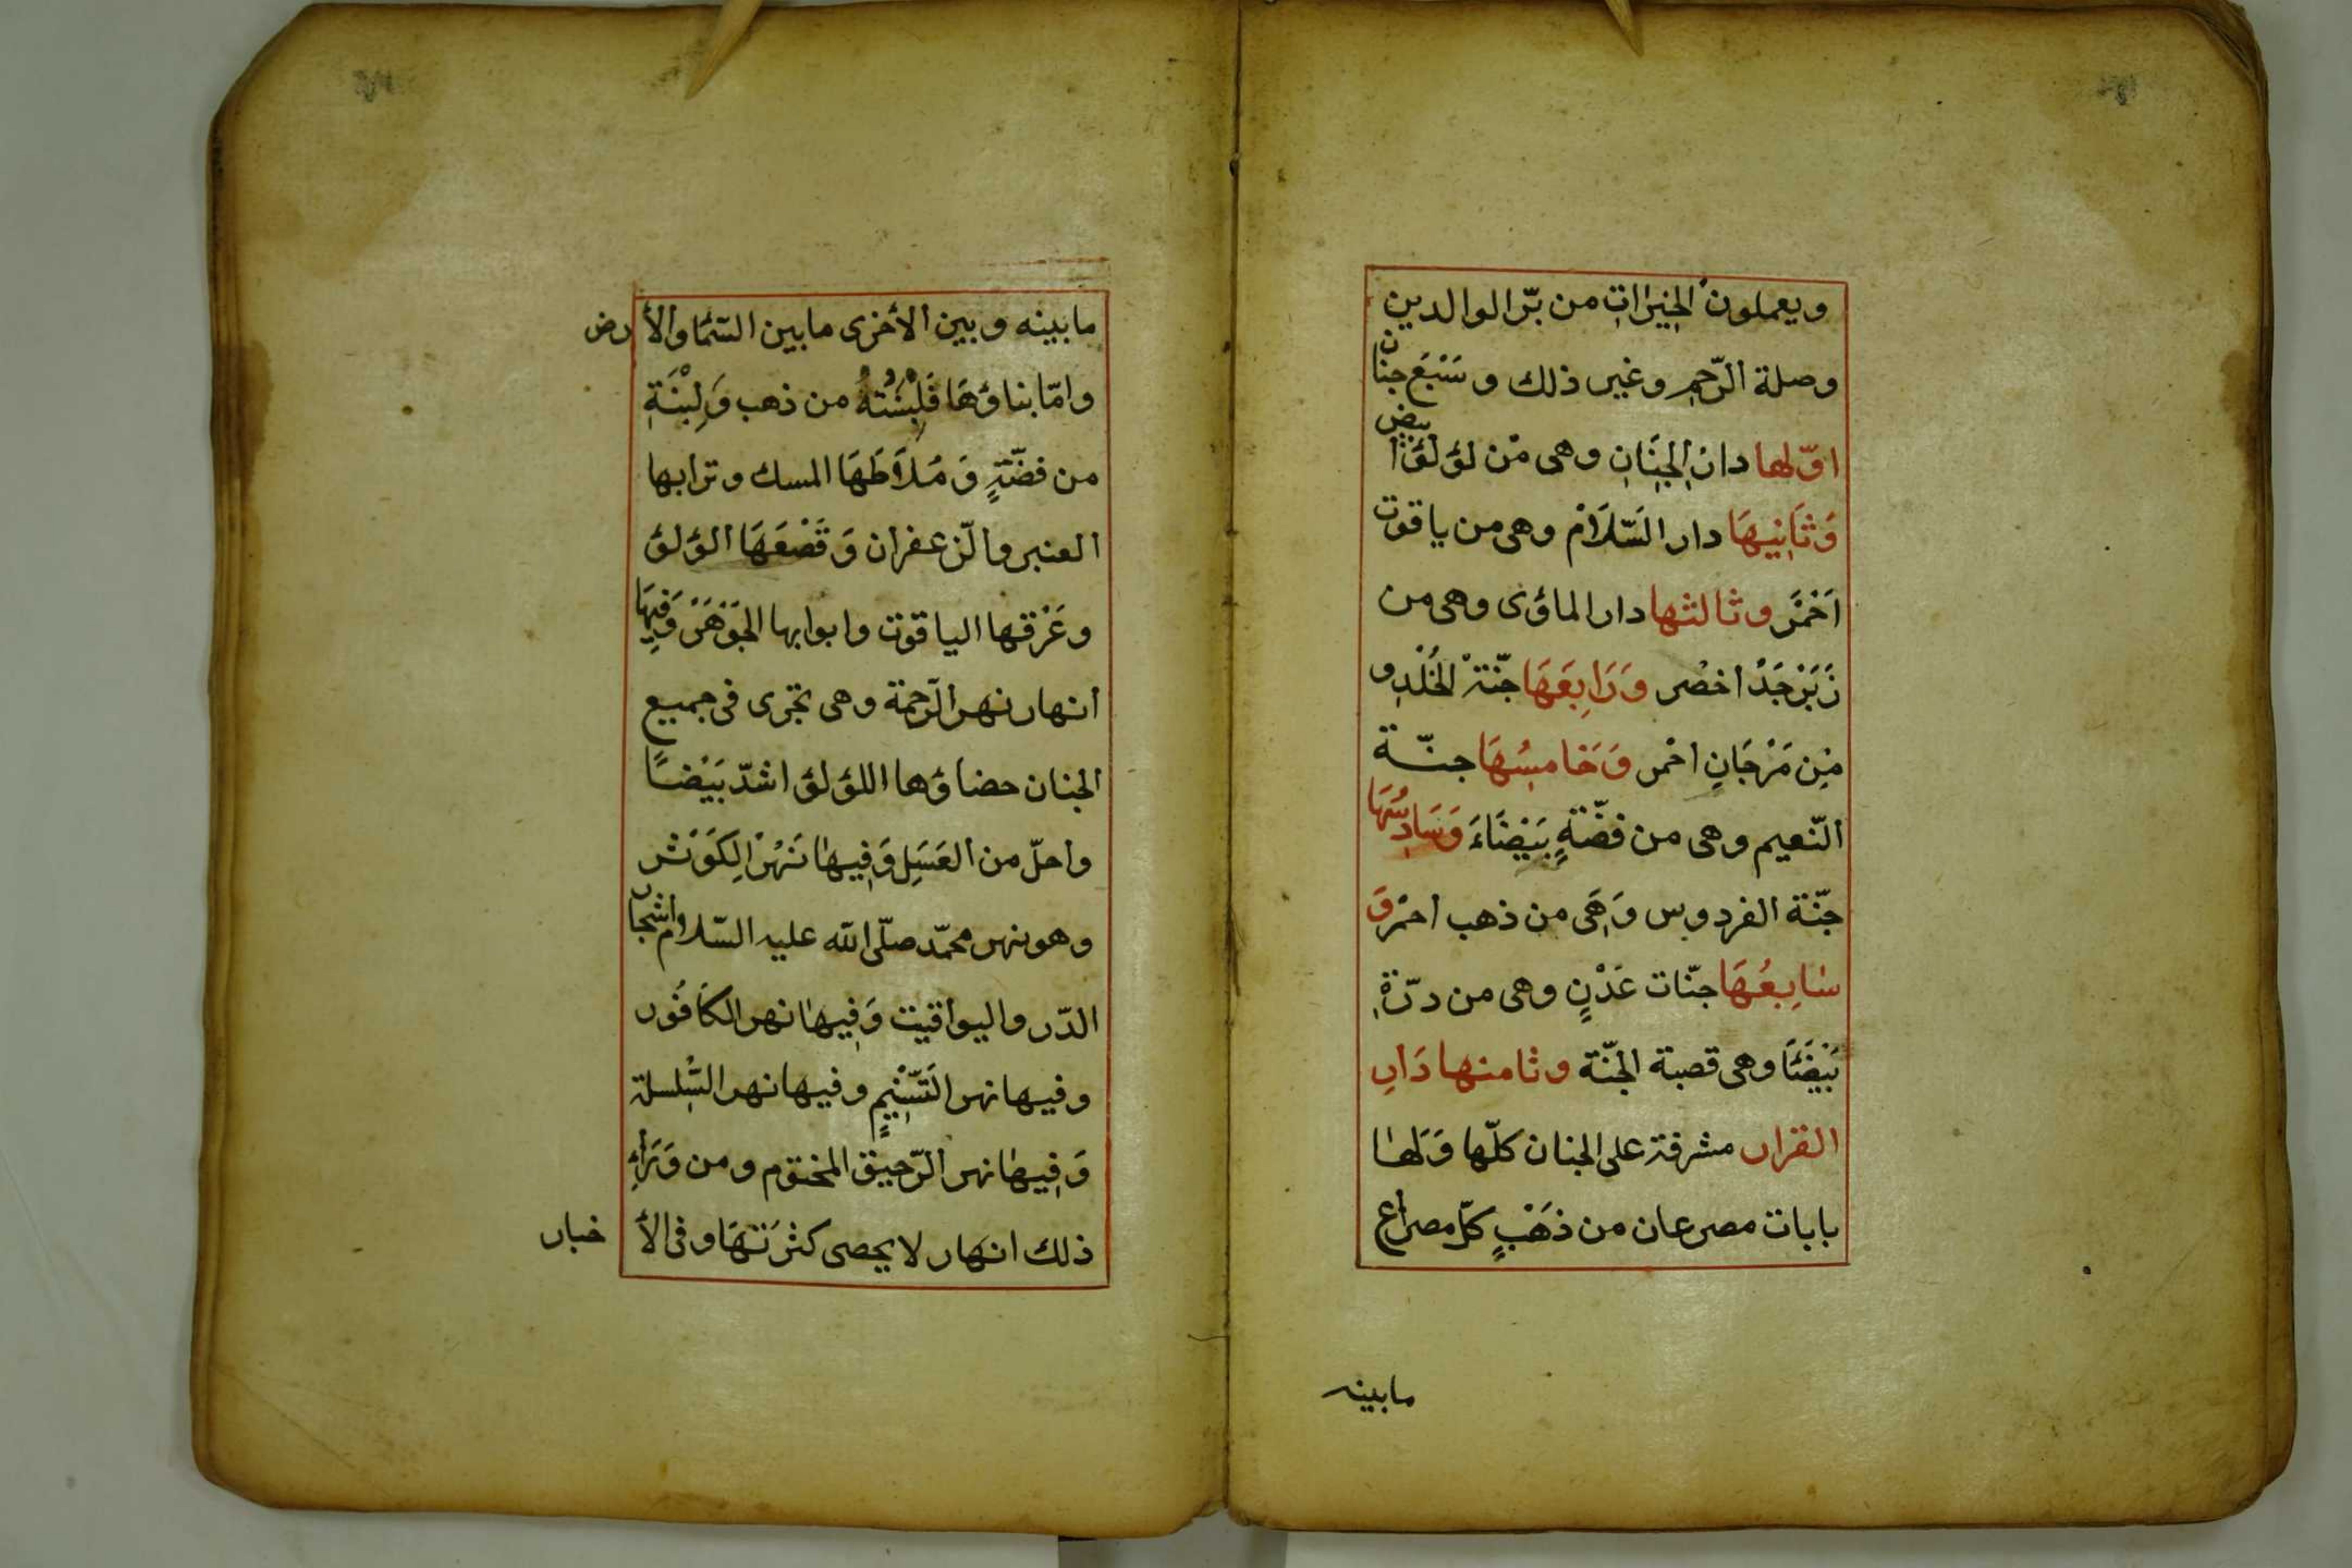 ويعملون الخيرات من برّ الوالدين
وصلة الرّحم وغير ذلك وسَبْعَ جنان
اوّلها دار الجِنَانِ وهى مْن لؤلؤ ابيض
وَثَانِيهَا دار السَّلَامْ وهى من ياقوت
اَحْمَر وثالثها دار الماؤى وهى من
زَبَرْجَدْ اخضر وَرَابِعَهَا جنّة الخُلْدِ و
مِن مَرْجَانٍ احْمر وَخَامِسُهَا جنّة
النّعيم وهى من فضّةٍ بَيْضَاءَ وَسَادِسُهَا
جنّة الفردوس وَهَى من ذهب احمْر وَ
سَابِعُهَا جنّات عَدْنٍ وهى من درّة
بَيْضَا وهى قصبة الجنّة وثامنها دَارِ
القرار مشرفة على الجنان كلّها وَلَها
بابات مصرعان من ذهَبٍ كلّ مصراع
مابينه
مابينه وبين الأخرى مابين السّما والأرض
وامّا بناؤها فَلِبْنَتُهُ من ذهب وَلِبْنَةِ
من فضّةٍ وَمُلَاطَهَا المسك وترابها
العنبر والزّعفران وَقَصْعَهَا الؤلؤ
وغَرْقها الياقوت وابوابها الجَوْهَرْ وَفِيهَا
انهار نهر الرّحمة وهى تجْرى فى جميع
الجنان حضاؤها اللؤلؤ اشدّ بَيَضًا
واحلّ من العَسَلِ وَفِيها نَهْرَ الِكَوَثر
وهو نهر محمّد صلّى الله عليه السّلام واشجار
الدّر واليواقيت وَفِيها نهر الكَافُور
وفيها نهر التَسْنِيمٍ وفيها نهر السّلسلة
وَفِيها نهر الرّحيق المختوم ومن وَرَاءِ
ذلك انهار لا يحصى كثرَتهَا وفى الأ خبار